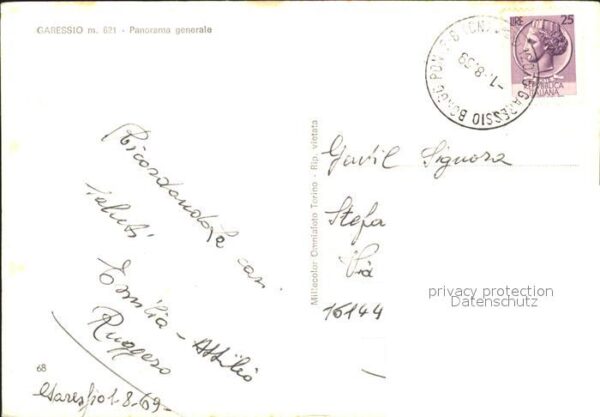 GARESSIO m. 621 - Panorama generale
LIRE 25
REPUBBLICA
ITALIANA
GARESSIO BORGO PON
-1.-8.69
Ricordandola cari
saluti
Emilia - Attilio
Ruggero
68
Garessio 1-8-69
Millecolor Omniafoto Torino - Rip. vietata
Gent.il Signora
Stefa
Via
16144
privacy protection
Datenschutz